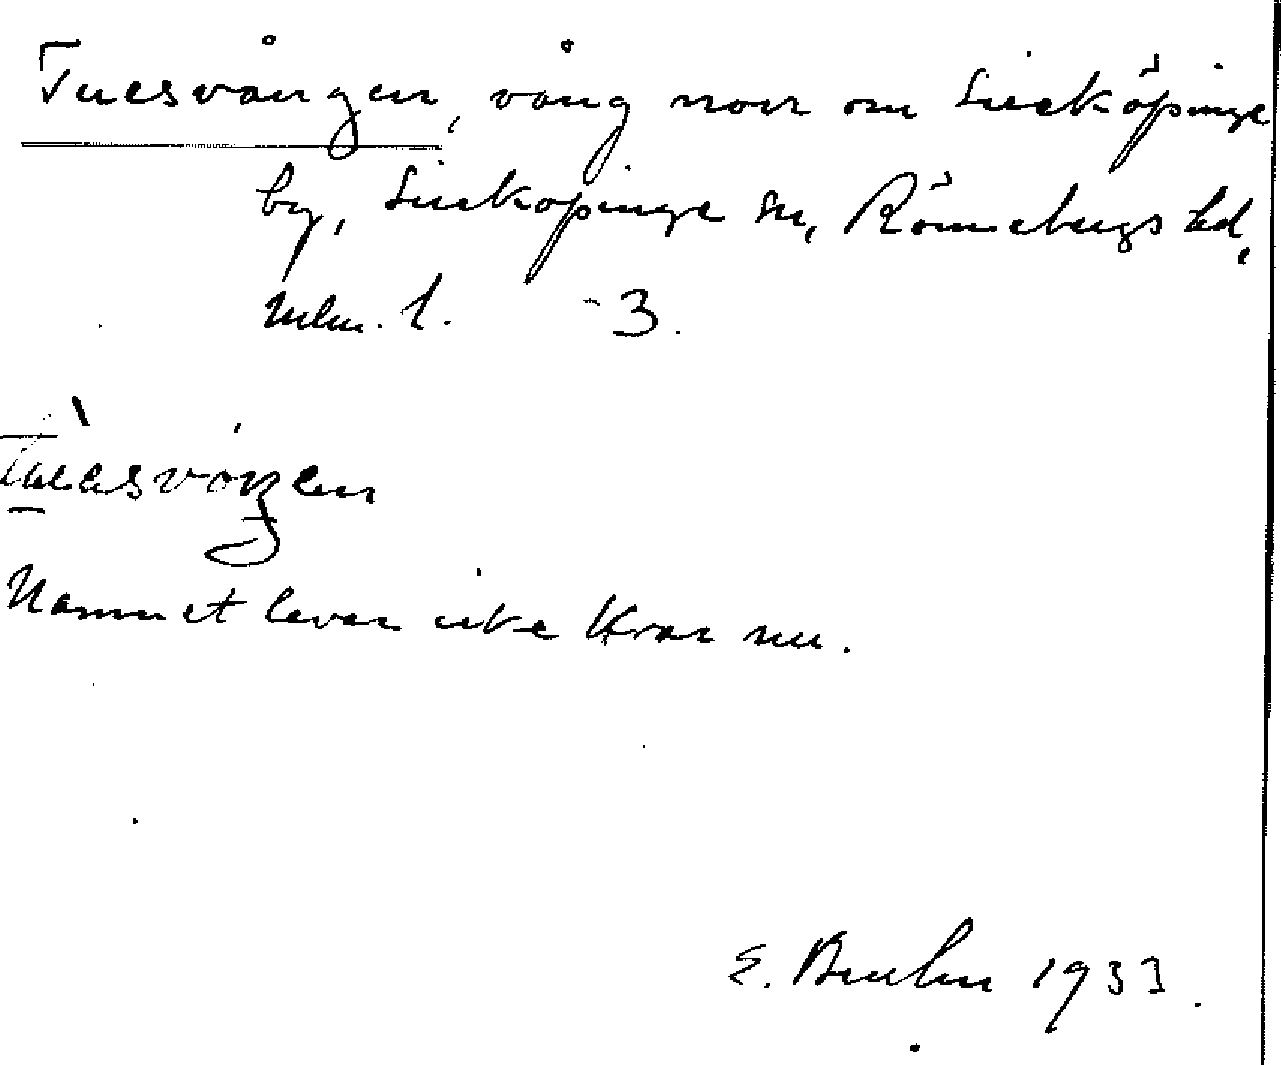 Tuesvången, vång norr om Sireköpinge
by, Sireköpinge sn, Rönnebergs hd,
Mlm. l. -3.
Namnet lever icke kvar nu.
E. Bruhn 1933.